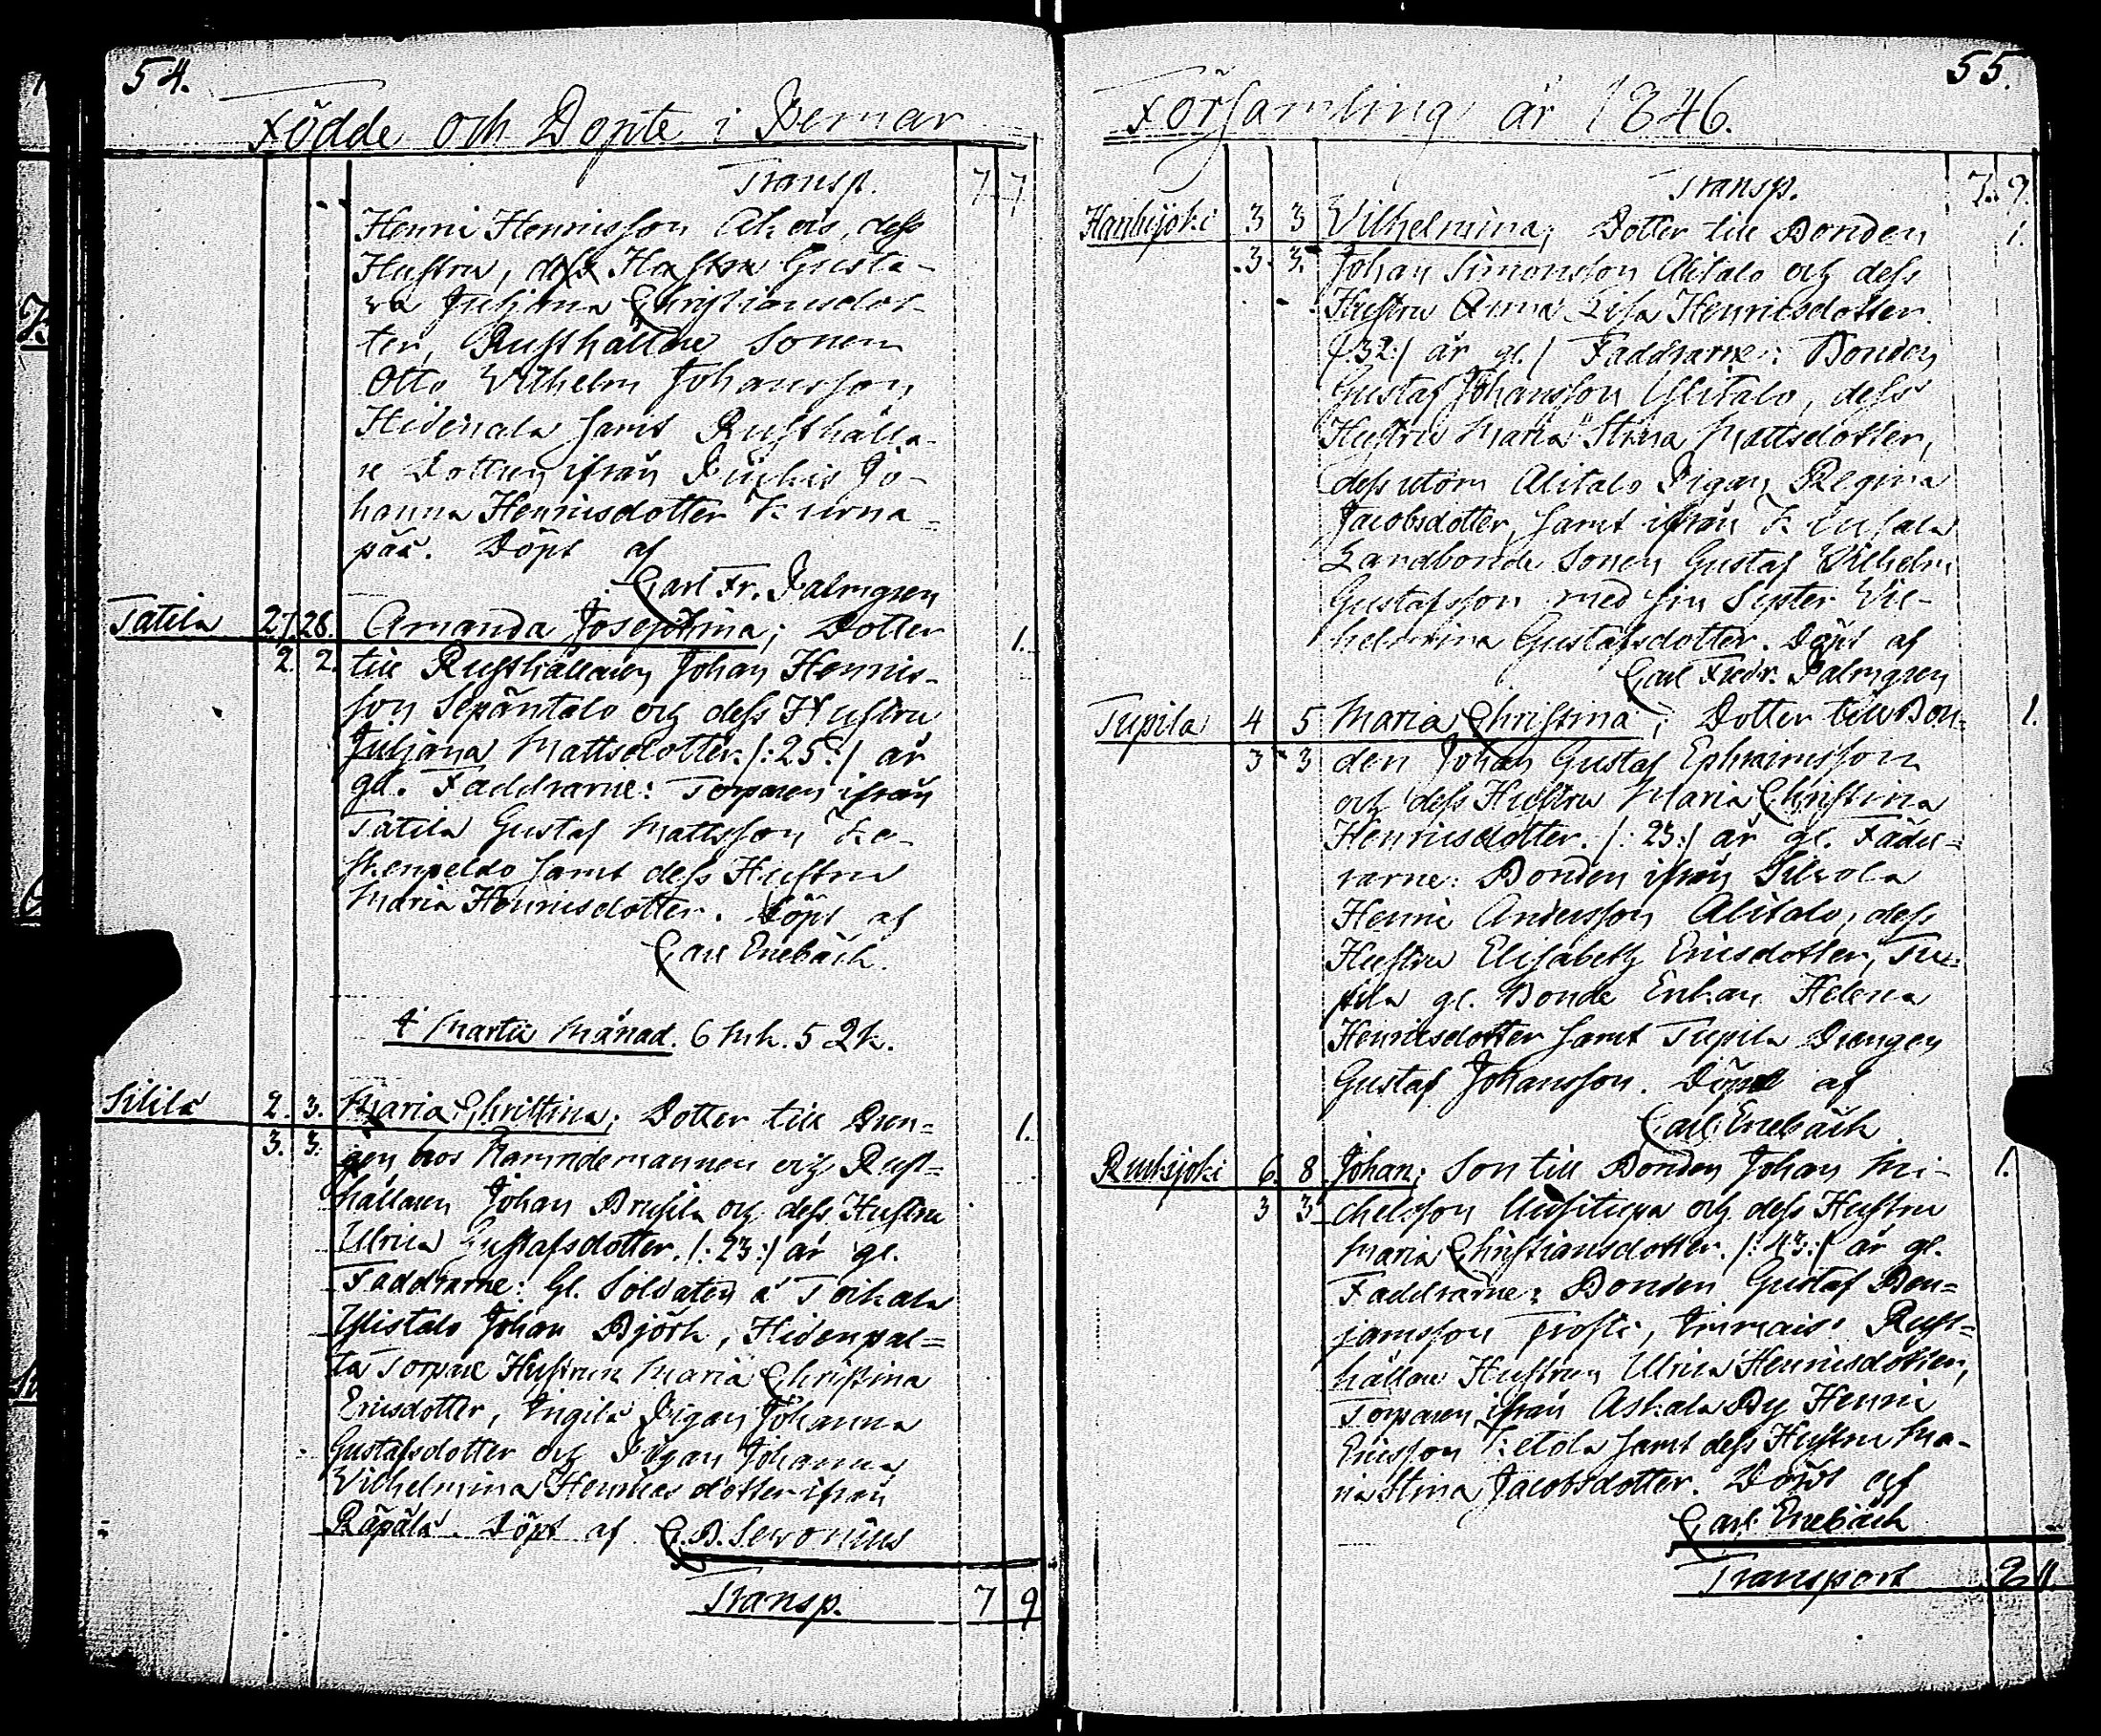 54.
Födde och Döpte i Bemar
Transp. 7 7
Henric Henricsson Akois, dess
Hustru, dess Hustru Gusta-
va Juljana Christiansdot-
ter, Rusthållare Sonen
Otto Vilhelm Johansson
Hidenala samt Rusthålla-
re Dottren ifrån Jo-
hanna Henricsdotter Kurna-
pää. Döpt af
Carl Fr. Palmgren
Tatila 27. 28. Amanda Josephina; Dotter 1.
2. 2. till Rusthållaren Johan Henrics-
son Sepäntalo och dess Hustru
Juljana Mattsdotter. /: 25 :/ år
gl. Faddrarne: Torparen ifrån
Tatila Gustaf Mattsson Ke-
skenpeldo samt dess Hustru
Maria Henricsdotter. Döpt af
Carl Enebäck.
i Martii Månad. 6 Mk. 5 Qk.
Silila 2. 3. Maria Christina; Dotter till Dren= 1.
3. 3. gen hos Nämndemannen och Rust=
hållaren Johan Brusila och dess Hustru
Ulrica Gustafsdotter. /: 23 :/ år gl.
Faddrarne: Gl. Soldaten å Toikala
Ylistalo Johan Björk, Hidenpal=
ta Torpare Hustrun Maria Christina
Ericsdotter, Ingila Pigan Johanna
Gustafsdotter och Pigan Johanna
Vilhelmina Henricsdotter ifrån
Räpälä. Döpt af C. B. Levonius
Transp. 7 9
55.
Församling år 1846.
Transp. 7. 9.
Hanhijoki 3 3 Vilhelmina; Dotter till Bonden 1.
3. 3. Johan Simonsson Alitalo och dess
Hustru Anna Lisa Henricsdotter.
/: 32 :/ år gl. / Faddrarne: Bonden
Gustaf Johansson Ylitalo, dess
Hustru Maria Stina Mattsdotter,
dessutom Alitalo Pigan Regina
Jacobsdotter, samt ifrån
Landbonde Sonen Gustaf Vilhelm
Gustafsson med sin Syster Vil-
helmina Gustafsdotter. Döpt af
Carl Fredr. Palmgren
Tupila 4 5 Maria Christina; Dotter till Bon= 1.
3 3 den Johan Gustaf Ephraimsson
och dess Hustru Maria Christina
Henricsdotter. /: 23 :/ år gl. Fadd=
rarne: Bonden ifrån Silvola
Henric Andersson Alitalo, dess
Hustru Elisabeth Ericsdotter, Tu=
pila gl. Bonde Enkan Helena
Henricsdotter samt Tupila Drengen
Gustaf Johansson. Döpt af
Carl Enebäck
Ruskijoki 6. 8. Johan; Son till Bonden Johan Mi- 1.
3 3 chelsson Uusitupa och dess Hustru
Maria Christiansdotter. /: 43 :/ år gl.
Faddrarne: Bonden Gustaf Ben=
jamsson Prosti, Rust=
hållare Hustrun Ulrica Henricsdotter,
Torparen ifrån Askala By Henric
Ericsson Ketola samt dess Hustru Ma-
ria Stina Jacobsdotter. Döpt af
Carl Enebäck
Transport 8 11